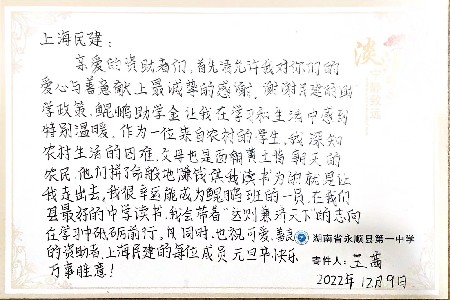 上海民建：
亲爱的资助者们，首先请允许我对你们的
爱心与善意献上最诚挚的感谢，谢谢民建的助
学政策，鲲鹏助学金让我在学习和生活中感到
特别温暖，作为一位来自农村的学生，我深知
农村生活的困难，父母也是面朝黄土背朝天的
农民，他们拼了命般地赚钱供我读书为的就是让
我走出去，我很幸运能成为鲲鹏班的一员，在我们
县最好的中学读书，我会带着“达则兼济天下”的志向
在学习中砥砺前行，同时，也祝可爱、善良
的资助者，上海民建的每位成员元旦节快乐
万事胜意！
湖南省永顺县第一中学
寄件人：王
2022年12月9日